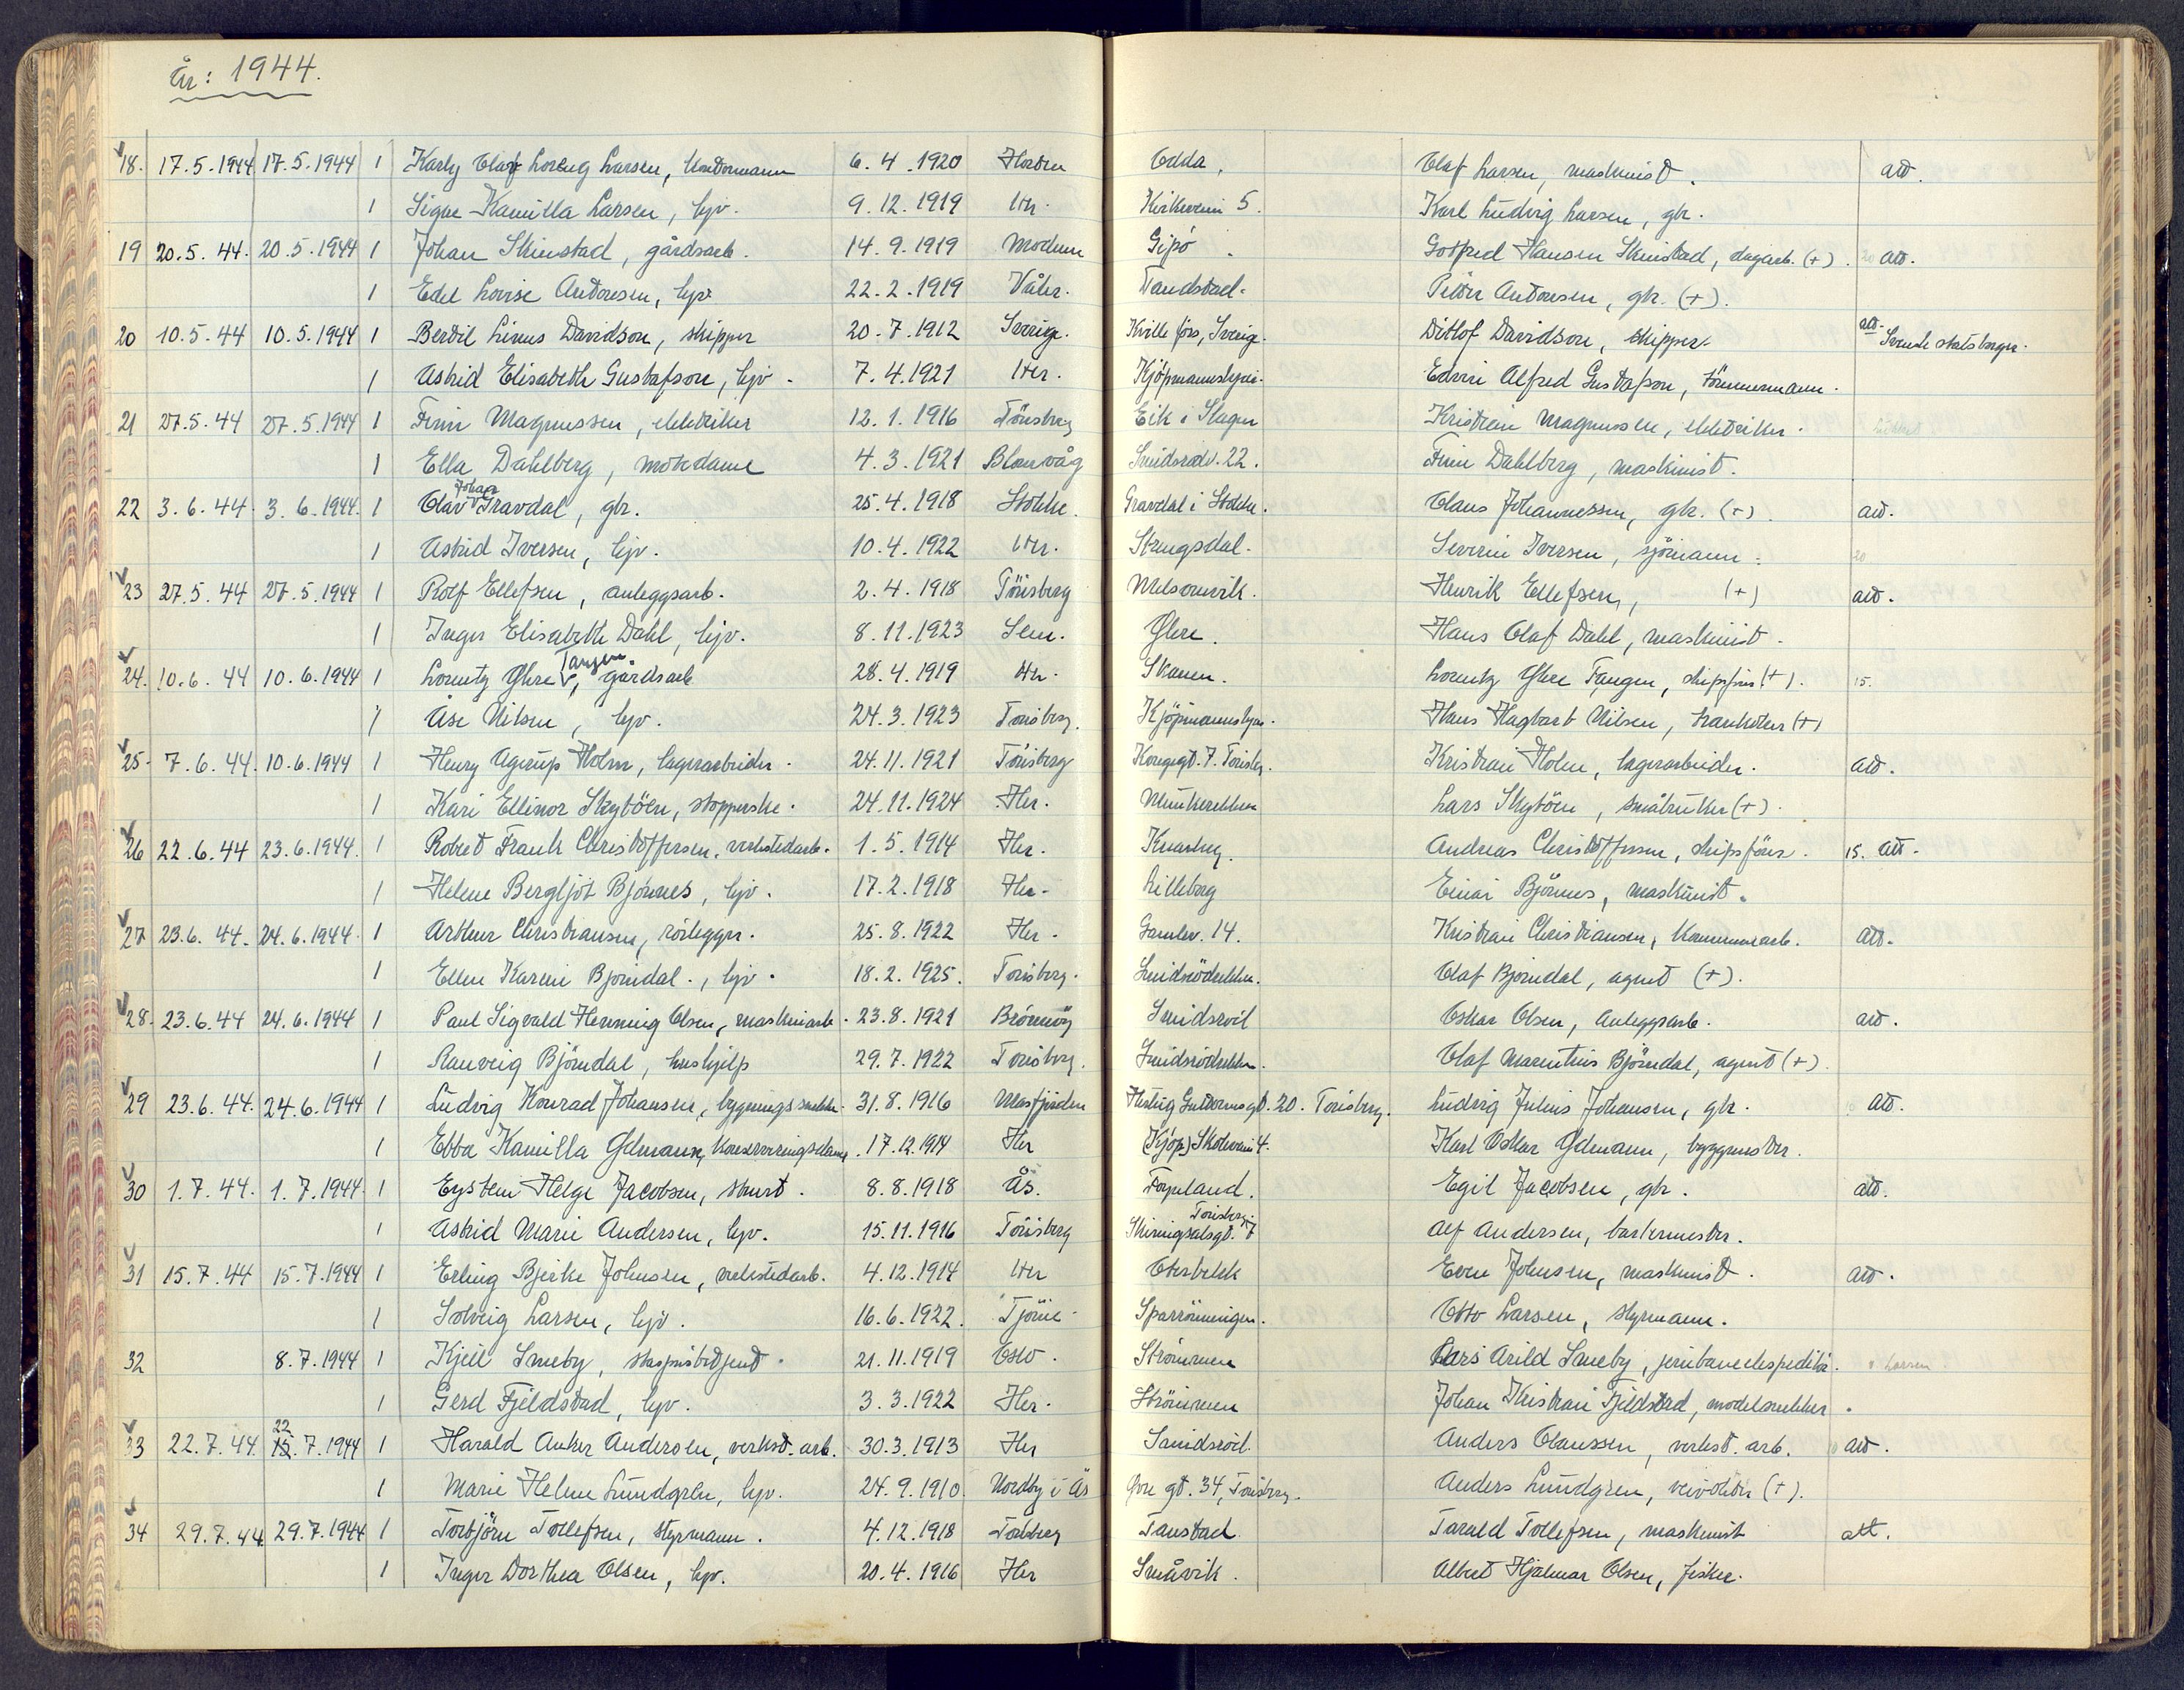 År: 1944.
18. 17.5.1944 17.5.1944 1 Karly Olaf Lorang Larsen, kontormann 6.4.1920 Odda, Olaf Larsen, maskinist. att.
1 Signe Kamilla Larsen, hjv. 9.12.1919 Her. Kirkeveien 5. Karl Ludvig Larsen, gbr.
19 20.5.44. 20.5.1944 1 Johan Skinstad, gårdsarb. 14.9.1919 Modum Gipö. Gotfred Hansen Skinstad, dagarb. (+). att.
1 Edel Lovise Andresen, hjv. 22.2.1919 Våler. Tandstad. Peder Andresen, gbr. (+).
20 10.5.44 10.5.1944 1 Bertil Linus Davidson, skipper 20.7.1912 Sverige. Kville förs, Sverige. Ditlof Davidson, skipper. att. Svensk statsborger.
1 Astrid Elisabeth Gustafson, hjv. 7.4.1921 Her. Kjöpmannskjær. Edvin Alfred Gustafson, tömmermann.
21 27.5.44 27.5.1944 1 Finn Magnussen, elektriker 12.1.1916 Tönsberg Eik i Slagen Kristian Magnussen, elektriker.
1 Ella Dahlberg, motedame 4.3.1921 Blomvåg Smidsrødv. 22. Finn Dahlberg, maskinist.
22 3.6.44. 3.6.1944. 1 Olav Johan Gravdal, gbr. 25.4.1918 Stokke. Gravdal i Stokke. Claus Johannessen, gbr. (+). att.
1 Astrid Iversen, hjv. 10.4.1922 Her. Strengsdal. Severin Iversen, sjömann. 20
23 27.5.44 27.5.1944 1 Rolf Ellefsen, anleggsarb. 2.4.1918 Tönsberg Melsomvik. Henrik Ellefsen, (+) att.
1 Inger Elisabeth Dahl, hjv. 8.11.1923 Sem. Ghre. Hans Olaf Dahl, maskinist.
24. 10.6.44 10.6.1944 1 Lorentz Ghre Tangen, gårdsarb 28.4.1919 Her. Skauen. Lorentz Ghre Tangen, skipsförer (+). 15.
1 Åse Nilsen, hjv. 24.3.1923 Tönsberg. Kjöpmannskjær. Hans Hagbart Nilsen, (+)
25. 7.6.44. 10.6.1944 1 Henry Agerup Holm, lagerarbeider. 24.11.1921 Tönsberg Kongegt. 7. Tönsbg. Kristian Holm, lagerarbeider. att.
1 Kari Ellinor Skytöen, stopperske. 24.11.1924 Her. Munkerekken Lars Skytöen, småbruker (+).
26 22.6.44 23.6.1944. 1 Robert Frank Christoffersen, verkstedarb. 1.5.1914 Her. Knarberg. Andreas Christoffersen, skipsförer. 15. att.
1 Helene Bergljot Bjönnes, hjv. 17.2.1918 Her. Lilleborg Einar Bjönnes, maskinist.
27 23.6.44. 24.6.1944 1 Arthur Christiansen, rörlegger. 25.8.1922 Her. Gamlev. 14. Kristian Christiansen, kommunearb. att.
1 Ellen Karin Bjöndal., hjv. 18.2.1925. Tönsberg. Smidsrödrekken. Olaf Bjöndal, agent (+).
28. 23.6.44 24.6.1944 1 Paul Sigvald Henning Olsen, maskinarb. 23.8.1921 Brönnöy Smidsröd Oskar Olsen, anleggsarb. att.
1 Ranveig Bjöndal, hushjelp 29.7.1922 Tönsberg. Smidsrödrekken. Olaf Marentius Bjöndal, agent (+).
29 23.6.44. 24.6.1944 1 Ludvig Konrad Johansen, bygningssnekker. 31.8.1916 Masfjorden Hertug Guttormsgt. 20. Tönsberg. Ludvig Julius Johansen, gbr. att.
1 Ebba Kamilla Gdmann, konserveringsdame. 17.12.1914 Her (Kjöp) Skolevein 4. Karl Oskar Gdmann, byggmester.
30 1.7.44. 1.7.1944 1 Eystein Helge Jacobsen, stud. 8.8.1918 Ås. Föynland. Egil Jacobsen, gbr. att.
1 Astrid Marie Andersen, hjv. 15.11.1916 Tönsberg Skiringsalsgt. 7 Tönsberg Alf Andersen, bakermester.
31 15.7.44 15.7.1944 1 Erling Bjerke Johnsen, verkstedarb. 4.12.1914 Her Oterbekk Even Johnsen, maskinist. att.
1 Solveig Larsen, hjv. 16.6.1922. Tjöme Sparrönningen. Otto Larsen, styrmann.
32 8.7.1944 1 Kjell Smeby, skespisbetjent. 21.11.1919 Oslo. Strömmen Lars Arild Smeby, jernbaneekspeditör. Larsen
1 Gerd Fjeldstad, hjv. 3.3.1922 Her. Strömmen Johan Kristian Fjeldstad, modelsnekker.
33 22.7.44. 22 15.7.1944 1 Harald Anker Andersen, verkst. arb. 30.3.1913 Her Smidsröd. Anders Claussen, verkst. arb. att.
1 Marie Helene Lundgren, hjv. 24.9.1910. Nordby i Ås Övre gt. 34, Tönsberg. Anders Lundgren, veivokter (+).
34 29.7.44 29.7.1944 1 Torbjörn Tollefsen, styrmann. 4.12.1918 Tönsberg Tanstad. Tarald Tollefsen, maskinist att.
1 Inger Dorthea Olsen, hjv. 20.4.1916 Her Småvik. Albert Hjalmar Olsen, fisker.